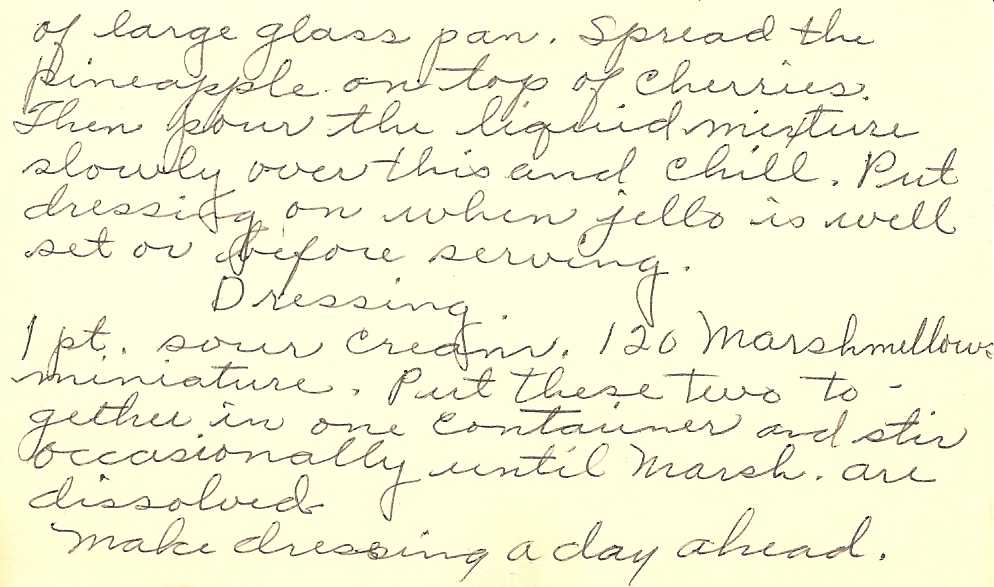 of large glass pan. Spread the
pineapple on top of cherries.
Then pour the liquid mixture
slowly over this and chill. Put
dressing on when jello is well
set or before serving.
Dressing.
1 pt. sour cream. 120 Marshmellows
miniature. Put these two to-
gether in one container and stir
occasionally until Marsh. are
dissolved
Make dressing a day ahead.